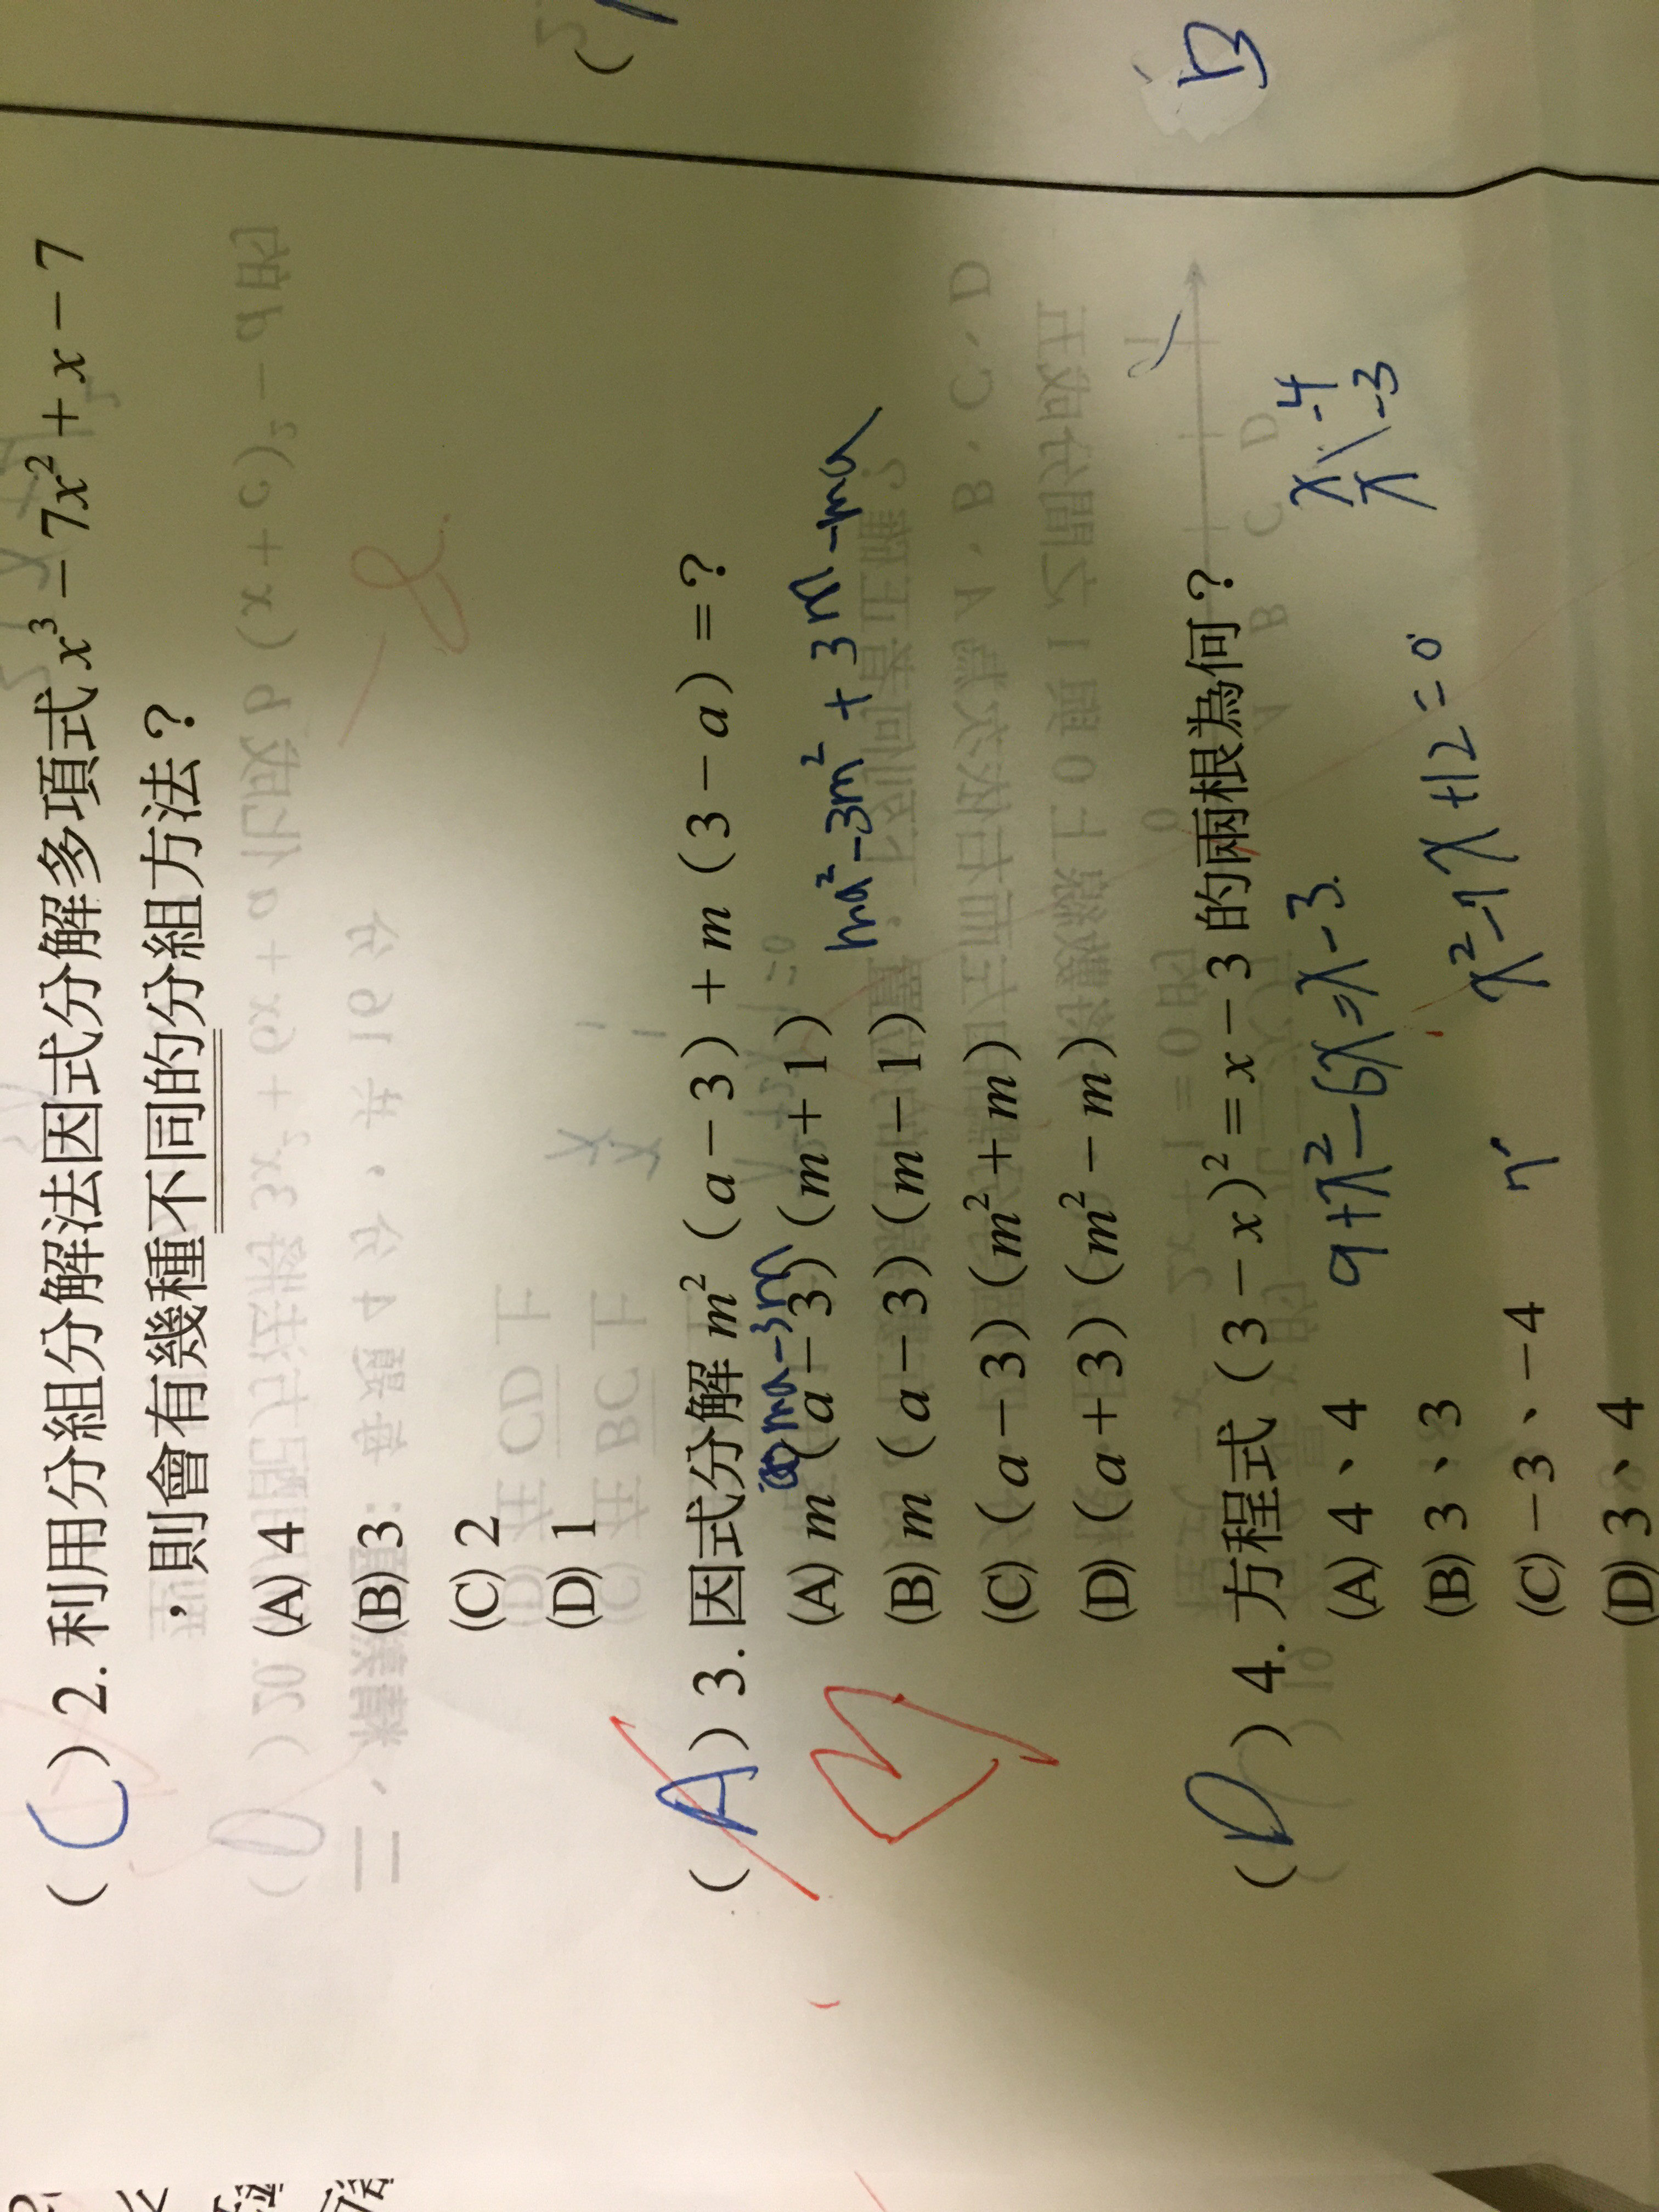 (C)2. 利用分組分解法因式分解多項式 x³－7x²＋x－7
，則會有幾種不同的分組方法？
(A) 4
(B) 3
(C) 2
(D) 1
(A)3. 因式分解 m²（a－3）＋m（3－a）＝？
ma-3m
(A) m（a－3）（m＋1）
ma²-3m²+3m-ma
(B) m（a－3）（m－1）
(C)（a－3）（m²＋m）
(D)（a＋3）（m²－m）
(D)4. 方程式（3－x）²＝x－3 的兩根為何？
(A) 4、4
9+x²-6x=x-3
x -4
x -3
(B) 3、3
x²-7x+12=0
(C) －3、－4
(D) 3、4
B